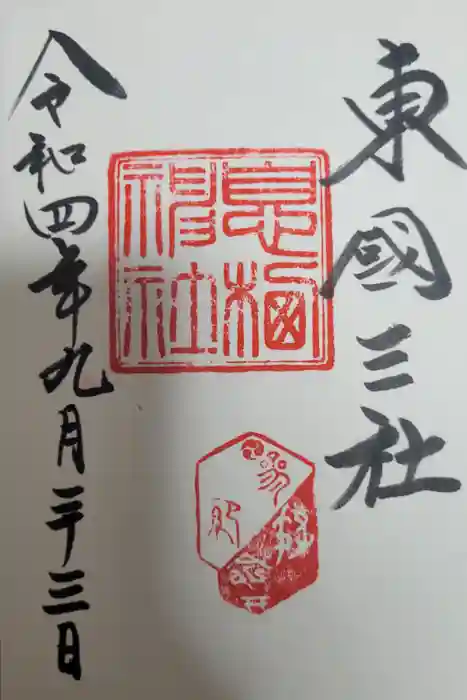 東國三社
息栖
神社
令和四年九月二十三日